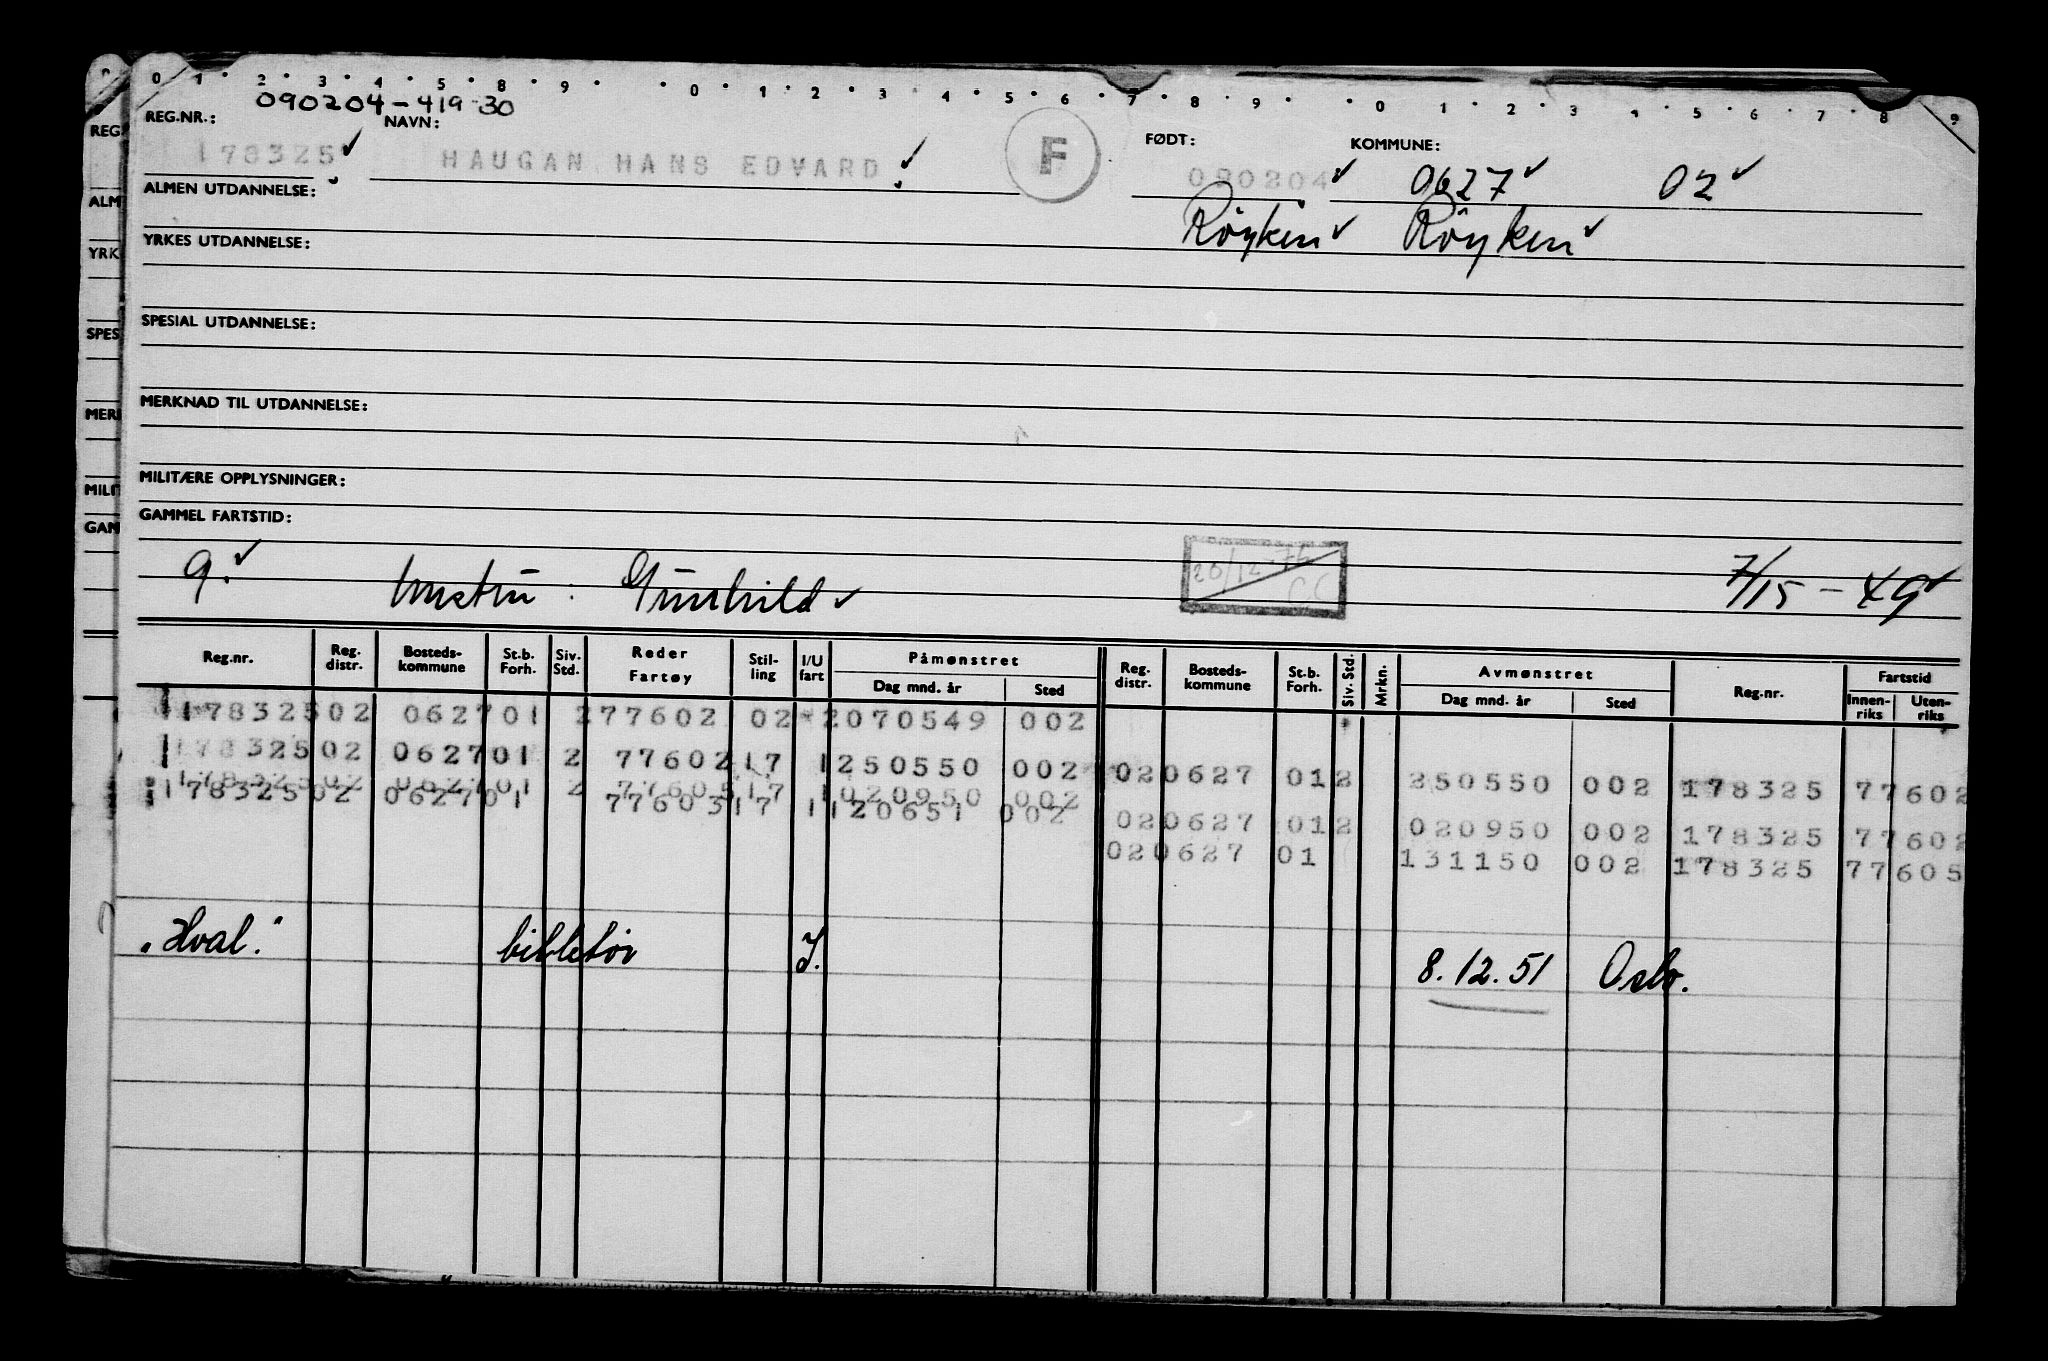 0 1 2 3 4 5 8 9 0 1 2 3 4 5 6 7 8 9 0 1 2 3 4 5 6 7 8 9
090204-419 30
REG.NR.: NAVN: FØDT: KOMMUNE:
178325 HAUGAN HANS EDVARD F 090204 0627 02
ALMEN UTDANNELSE: Röyken Röyken
YRKES UTDANNELSE:
SPESIAL UTDANNELSE:
MERKNAD TIL UTDANNELSE:
MILITÆRE OPPLYSNINGER:
GAMMEL FARTSTID:
g. hustru: Gunhild 7/15 - 49
Reg.nr. Reg. distr. Bosteds- kommune St.b. Forh. Siv. Std. Reder Fartøy Stil- ling I/U fart Påmønstret Dag mnd. år Sted Reg. distr. Bosteds- kommune St.b. Forh. Siv. Std. Mrkn. Avmønstret Dag mnd. år Sted Reg.nr. Fartstid Innen- riks Uten- riks
178325 02 0627 01 2 77602 02 2 070549 002
178325 02 0627 01 2 77602 17 1 250550 002 02 0627 01 2 250550 002 178325 77602
178325 02 0627 01 2 77605 17 1 020950 002
178325 02 0627 01 77603 17 1 120651 002
02 0627 01 2 020950 002 178325 77602
02 0627 01 131150 002 178325 77605
"Hval." I. 8.12.51 Oslo.
REG
ALM
YRK
SPES
MER
MILIT
GAM